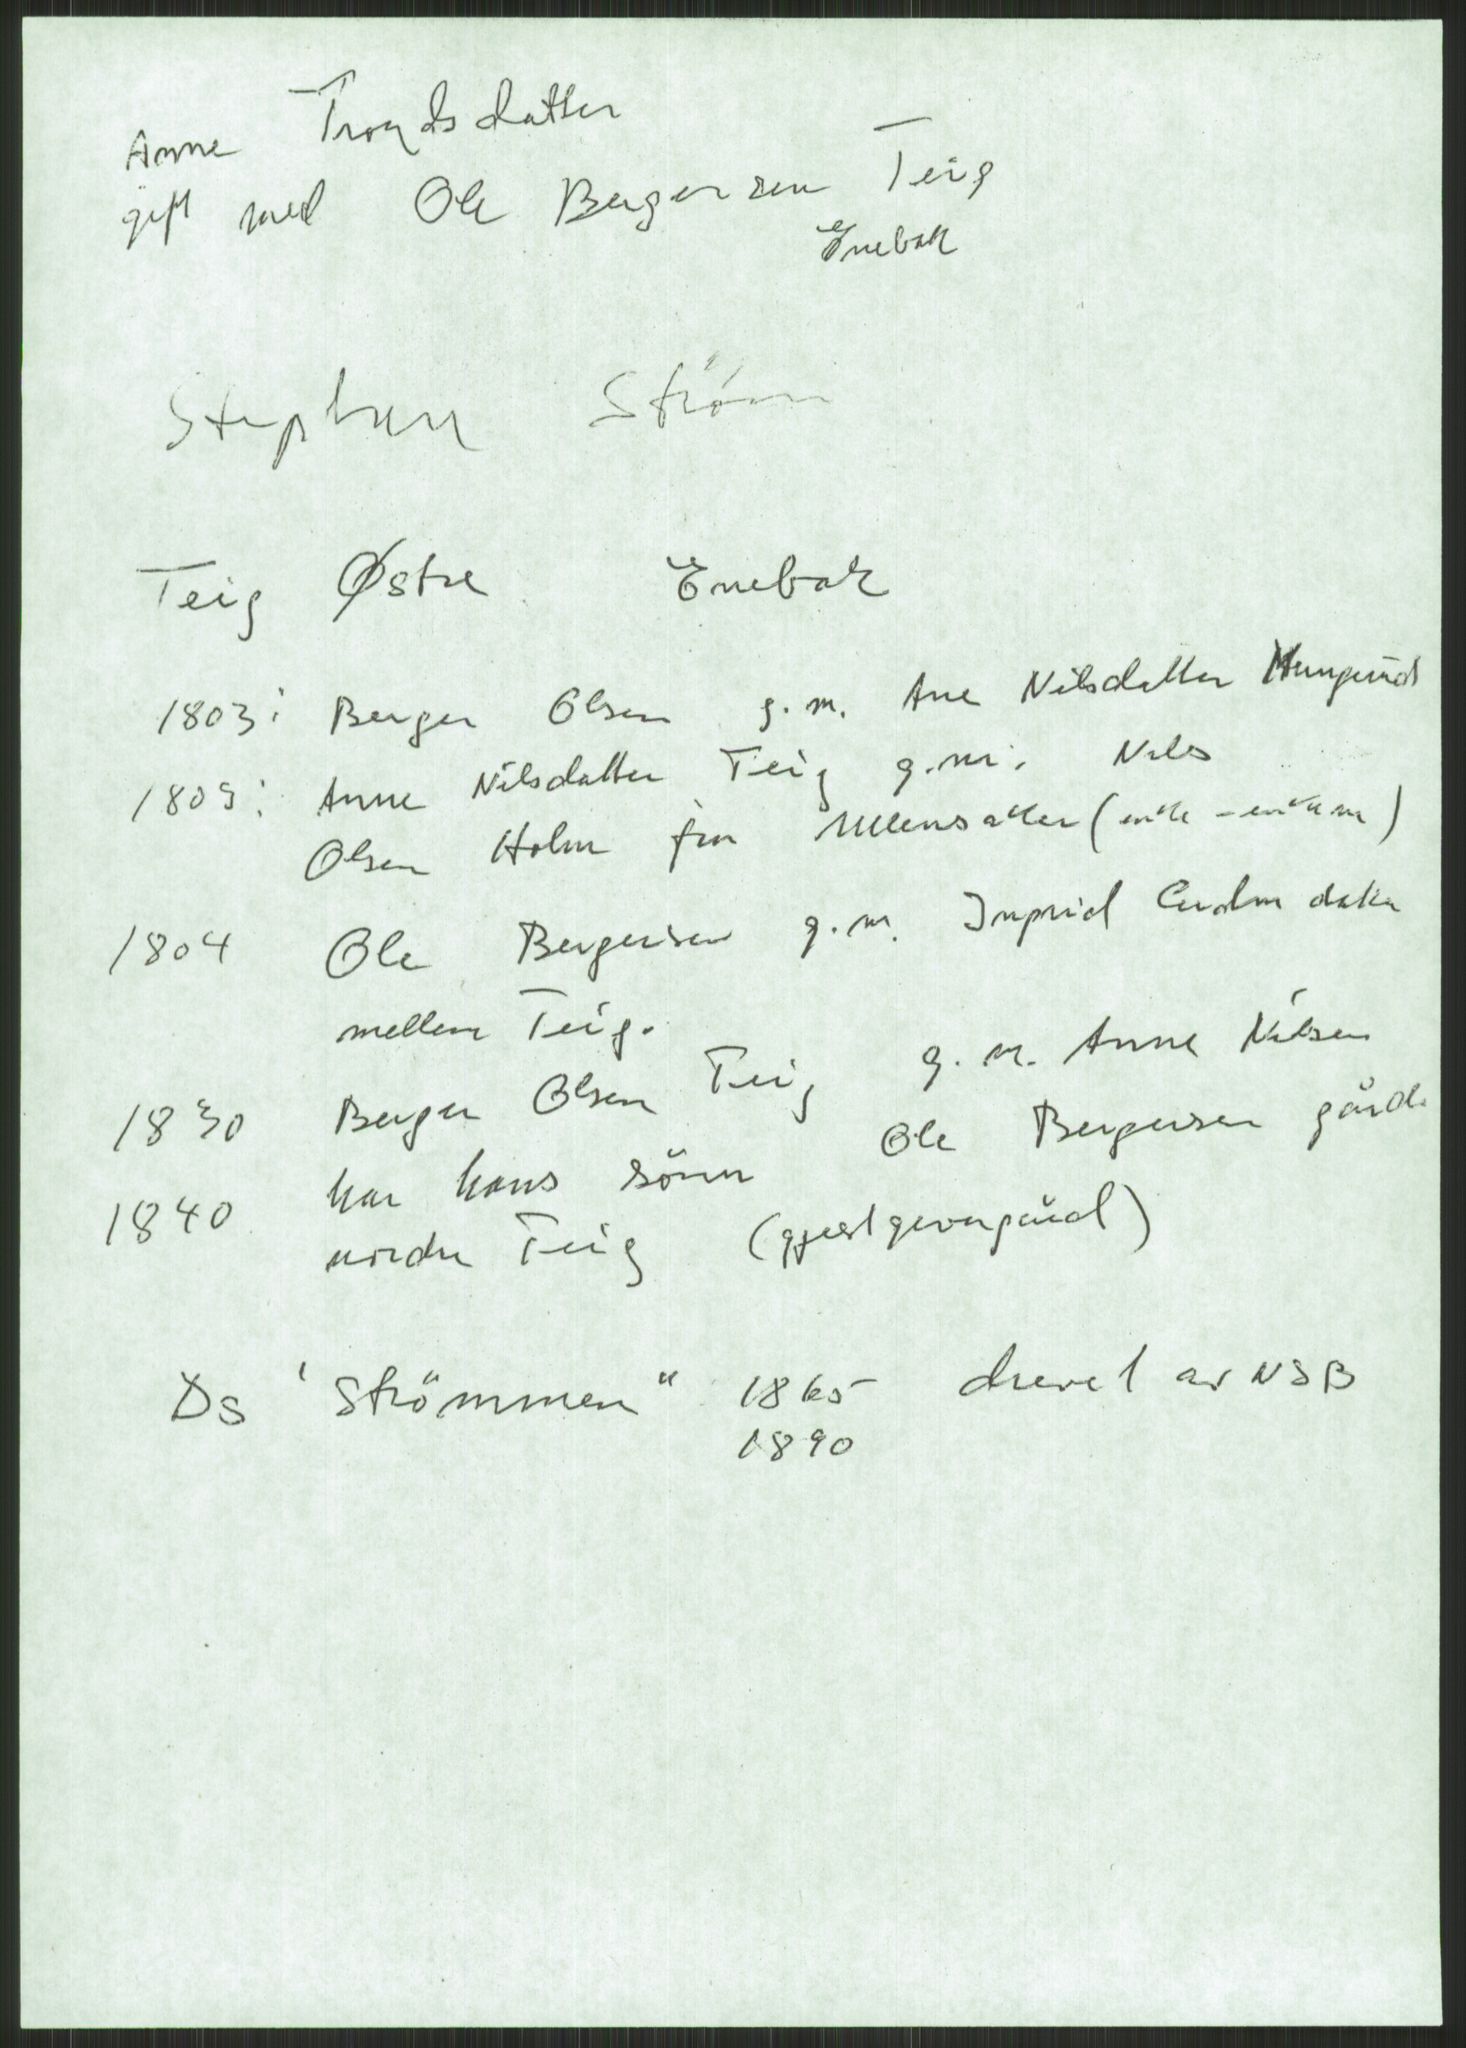 Anne Trondsdatter
gift med Ole Bergersen Teig
Enebak
Stephan Ström
Teig Østre Enebak
1803: Berger Olsen g.m. Ane Nilsdatter
1809: Anne Nilsdatter Teig g.m. Nils
Olsen Holm fra Ullensaker (enke - enkem)
1804 Ole Bergersen g.m. Ingrid
mellem Teig.
1830 Berger Olsen Teig g.m. Anne Nilsen
1840 har hans sönn Ole Bergersen gård
nordre Teig (gjestgevergård)
Ds "Strömmen" 1865 drevet av NSB
1890